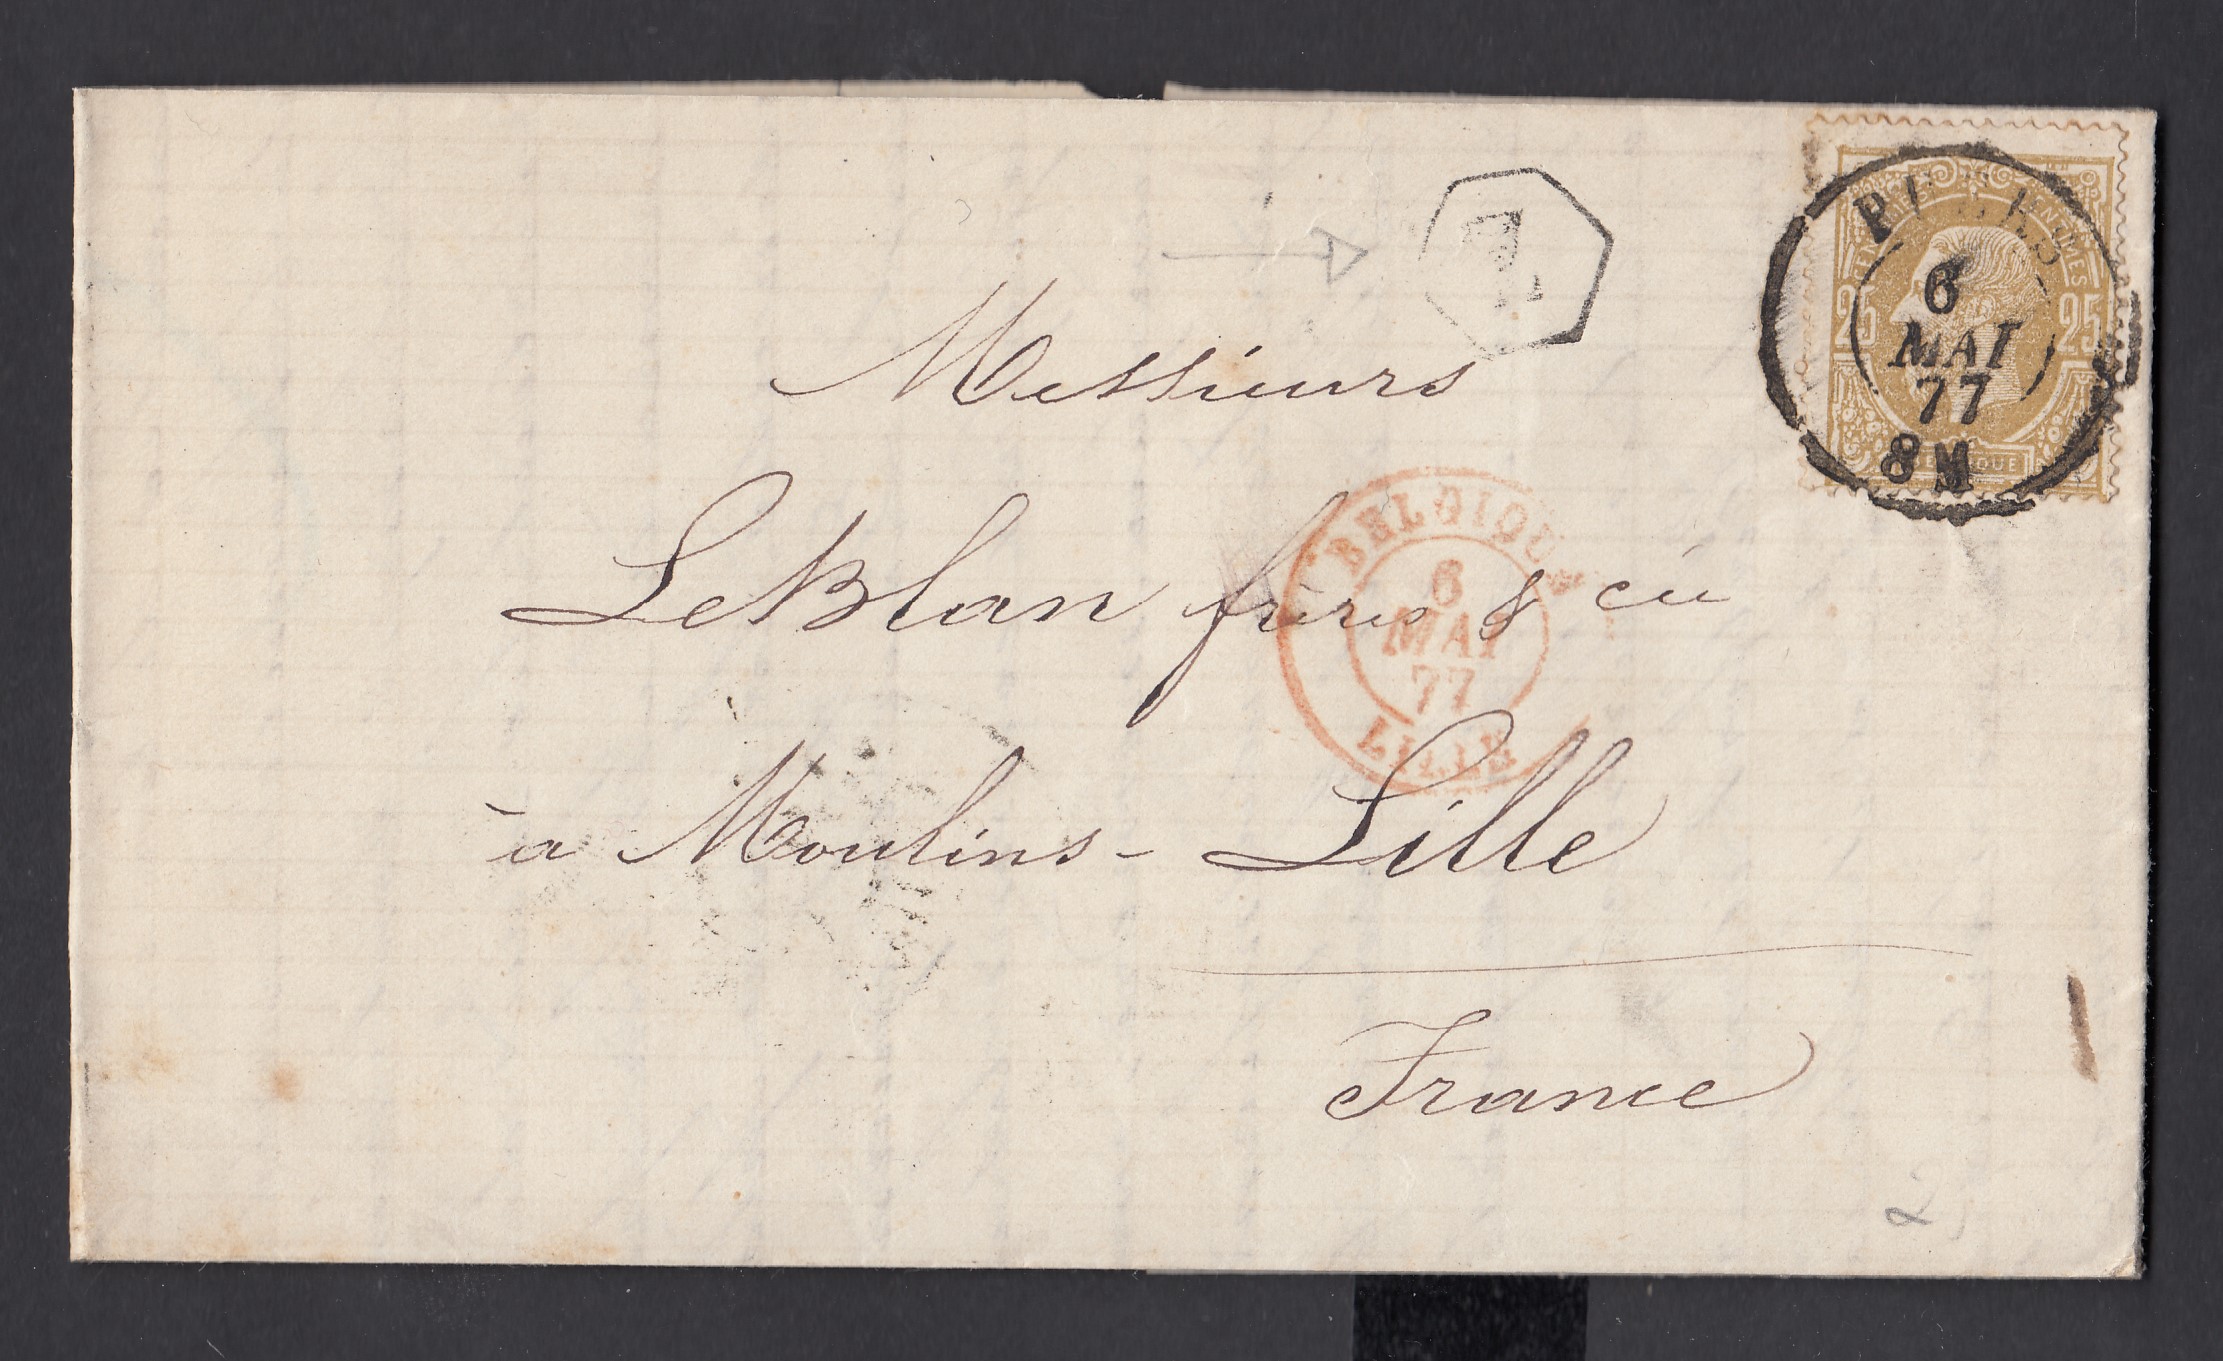 25 25
6
MAI
77
8 M
Messieurs
BELGIQUE
6
MAI
77
LILLE
LeBlan frères & cie
à Moulins-Lille
France
2